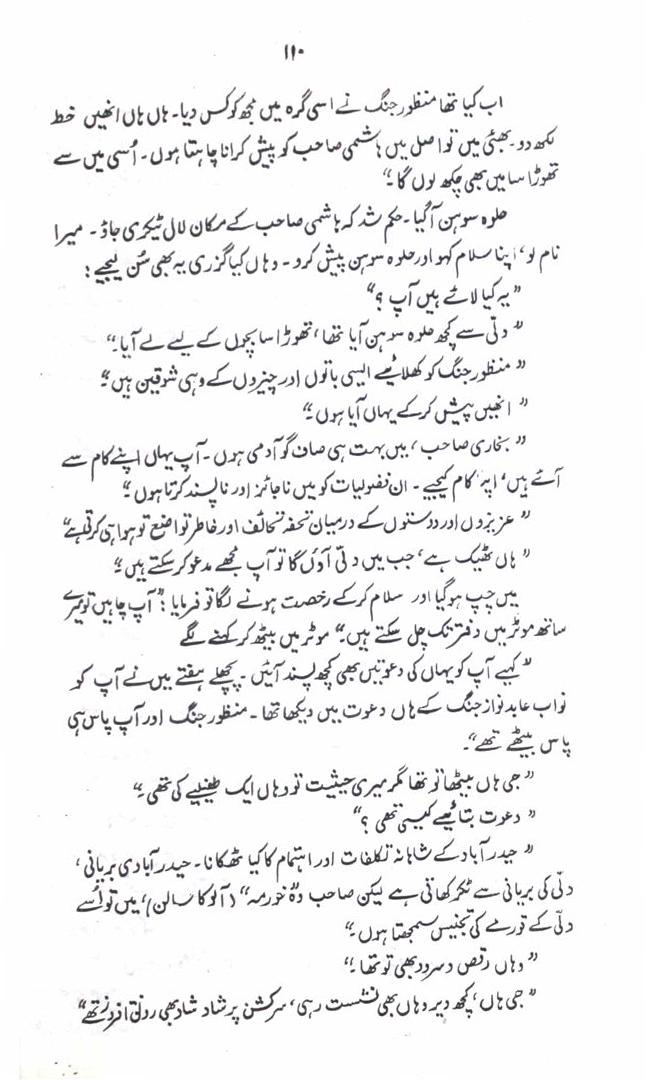 ۱۱۰
اب کیا تھا منظور جنگ نے اسی گرہ میں مجھ کو کس دیا۔ ہاں ہاں انھیں خط
لکھ دو۔ بھئی میں تو اصل میں ہاشمی صاحب کو پیش کرانا چاہتا ہوں۔ اُسی میں سے
تھوڑا سا میں بھی چکھ لوں گا۔“
حلوہ سوہن آ گیا۔ حکم شد کہ ہاشمی صاحب کے مکان لال ٹیکری جاؤ۔ میرا
نام لو، اپنا سلام کہو اور حلوہ سوہن پیش کرو۔ وہاں کیا گزری یہ بھی سُن لیجیے:
”یہ کیا لائے ہیں آپ؟“
”دلّی سے کچھ حلوہ سوہن آیا تھا، تھوڑا سا بچوں کے لیے لے آیا۔“
”منظور جنگ کو کھلائیے ایسی باتوں اور چیزوں کے وہی شوقین ہیں“
”انھیں پیش کر کے یہاں آیا ہوں۔“
”بخاری صاحب، میں بہت ہی صاف گو آدمی ہوں۔ آپ یہاں اپنے کام سے
آئے ہیں، اپنا کام کیجیے۔ ان فضولیات کو میں ناجائز اور ناپسند کرتا ہوں“
”عزیزوں اور دوستوں کے درمیان تحفہ تحائف اور خاطر تواضع تو ہوا ہی کرتی ہے“
”ہاں ٹھیک ہے، جب میں دلی آؤں گا تو آپ مجھے مدعو کر سکتے ہیں“
میں چپ ہو گیا اور سلام کر کے رخصت ہونے لگا تو فرمایا: ”آپ چاہیں تو میرے
ساتھ موٹر میں دفتر تک چل سکتے ہیں۔“ موٹر میں بیٹھ کر کہنے لگے
”کہیے آپ کو یہاں کی دعوتیں بھی کچھ پسند آئیں۔ پچھلے ہفتے میں نے آپ کو
نواب عابد نواز جنگ کے ہاں دعوت میں دیکھا تھا۔ منظور جنگ اور آپ پاس ہی
پاس بیٹھے تھے“۔
”جی ہاں بیٹھا تو تھا مگر میری حیثیت تو وہاں ایک طفیلیے کی تھی۔“
”دعوت بتائیے کیسی تھی؟“
”حیدرآباد کے شاہانہ تکلفات اور اہتمام کا کیا ٹھکانا۔ حیدرآبادی بریانی،
دلّی کی بریانی سے ٹکر کھاتی ہے لیکن صاحب وہ ”خورمہ“ (آلو کا سالن)، میں تو اُسے
دلّی کے قورمے کی تجنیس سمجھتا ہوں۔“
”وہاں رقص و سرود بھی تو تھا۔“
”جی ہاں، کچھ دیر وہاں بھی نشست رہی، سر کشن پرشاد شاد بھی رونق افروز تھے“